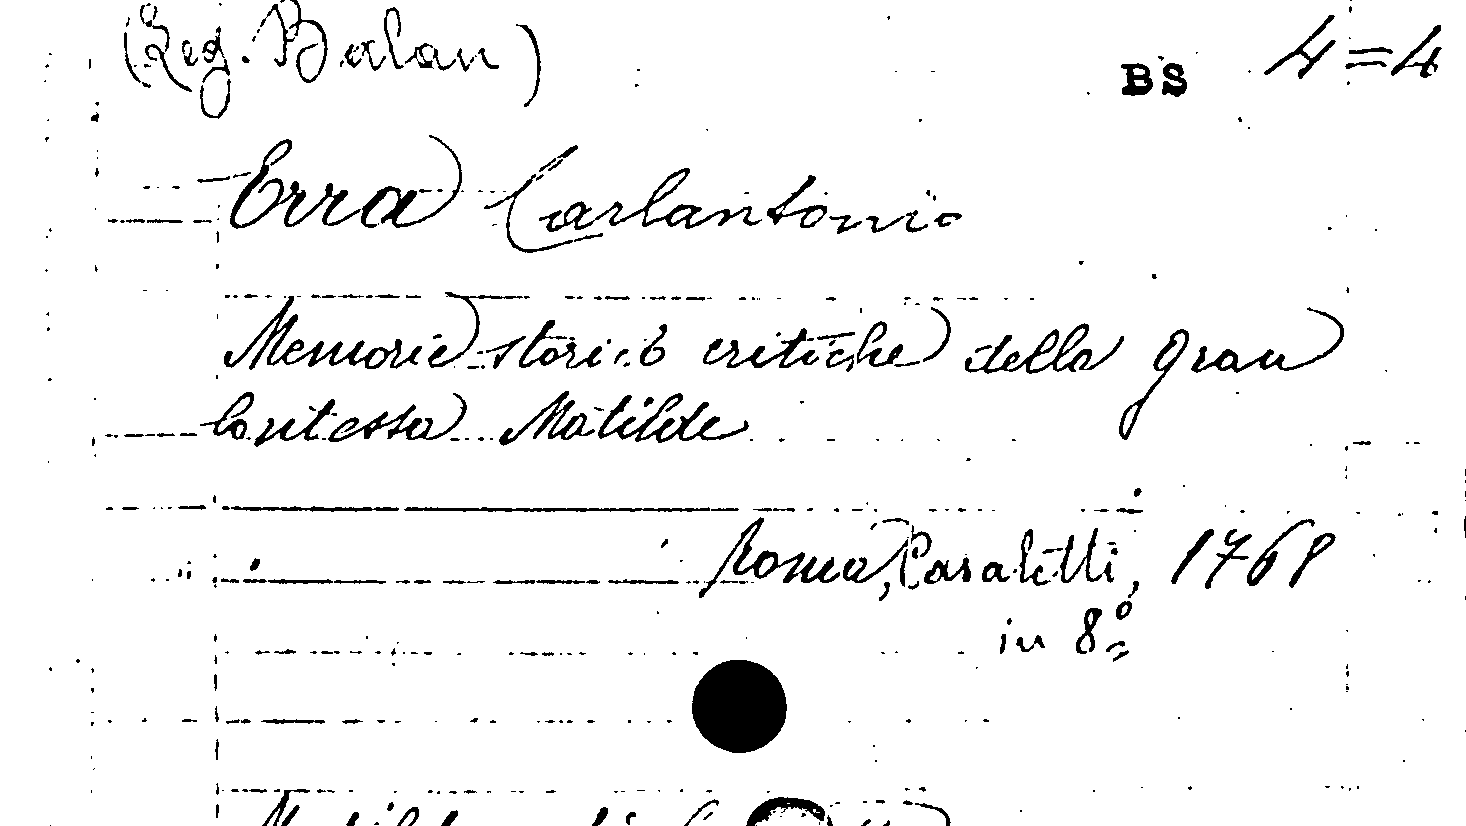 (Reg. Balan)
BS 4=4
Erra Carlantonio
Memorie storico critiche della gran
Contessa Matilde
Roma, Casaletti, 1768
in 8°